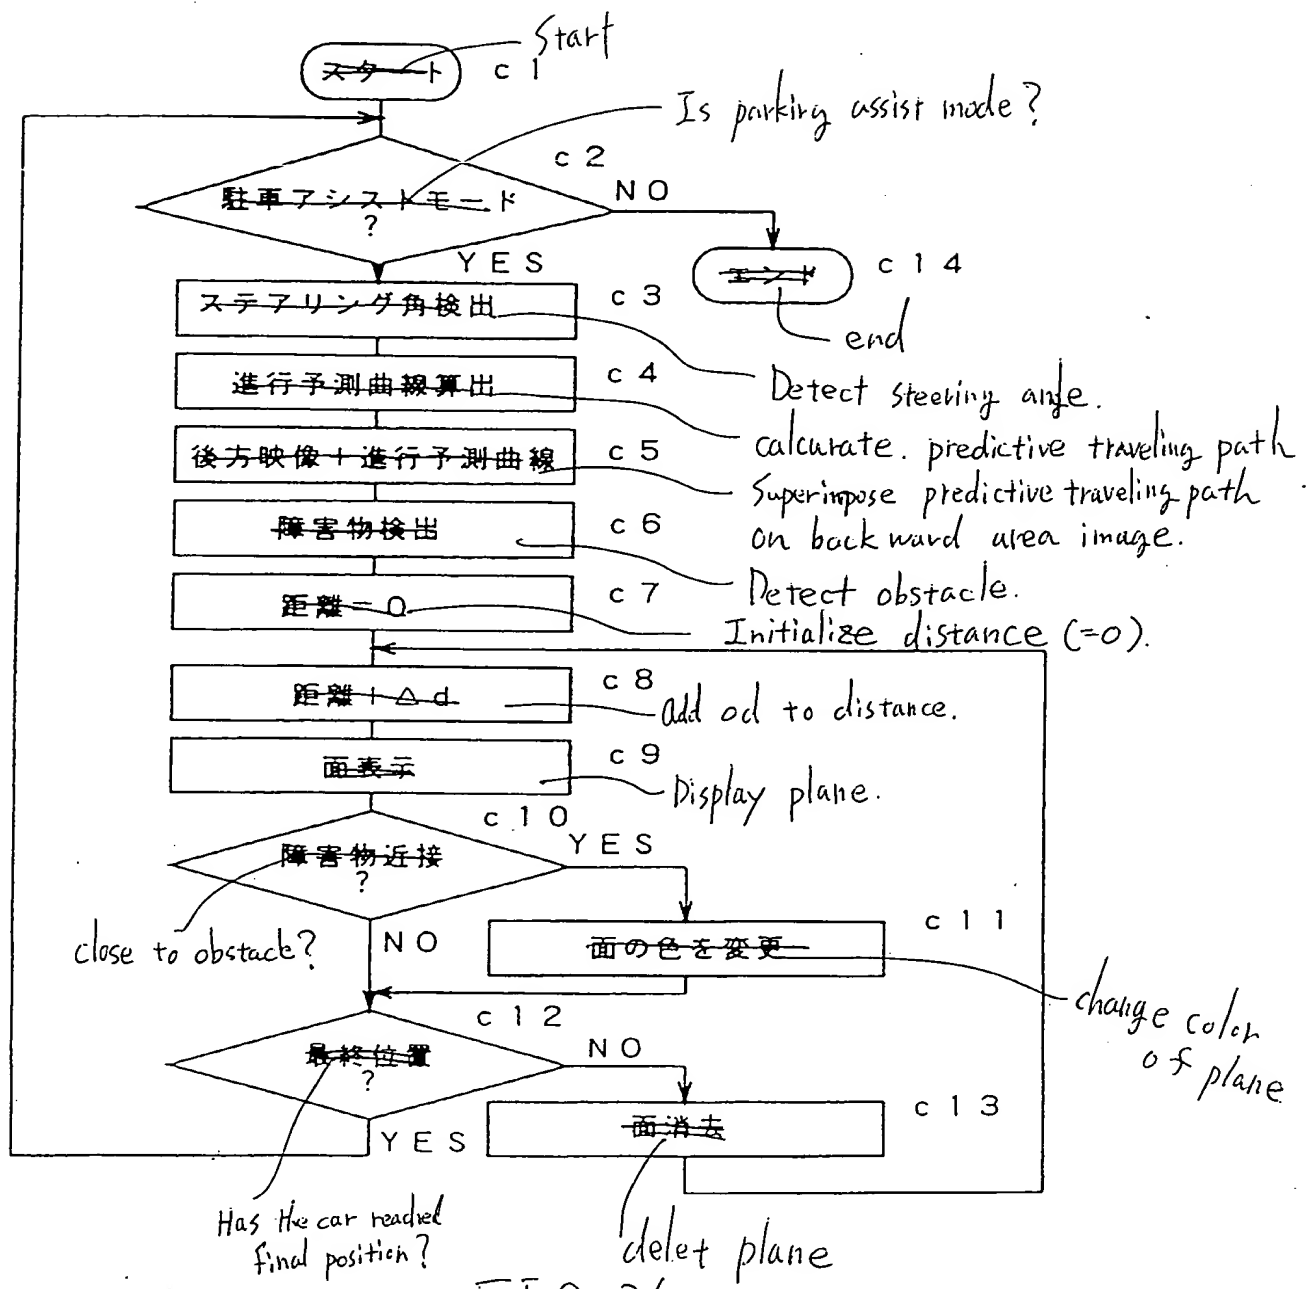 Start
スタート
c1
Is parking assist mode?
c2
駐車アシストモード
?
NO
YES
エンド
c14
end
ステアリング角検出
c3
Detect steering angle.
進行予測曲線算出
c4
calcurate. predictive traveling path
後方映像+進行予測曲線
c5
Superimpose predictive traveling path
on backward area image.
障害物検出
c6
Detect obstacle.
距離=0
c7
Initialize distance (=0).
距離+△d
c8
Add od to distance.
面表示
c9
Display plane.
c10
障害物近接
?
YES
close to obstacle?
NO
面の色を変更
c11
change color
of plane
c12
最終位置
?
NO
YES
面消去
c13
Has the car reached
final position?
delet plane